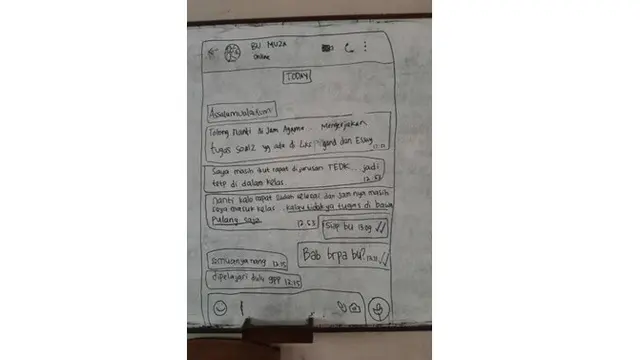 BU MUZA
Online
TODAY
Assalamualaikum
Tolong nanti di Jam Agama... Mengerjakan
tugas soal2 yg ada di LKS Pilgand dan Essay
Saya masih ikut rapat di jurusan TEDK... jadi
tete di dalam kelas
12.53
Nanti kalo rapat sudah selesai dan Jam nya masih
saya masuk kelas. kalau tidak ya tugas di bawa
pulang saja
12.53
Siap bu 13.09
Bab brpa bu?
semuanya nang 12.15
dipelajari dulu gpp 12.15